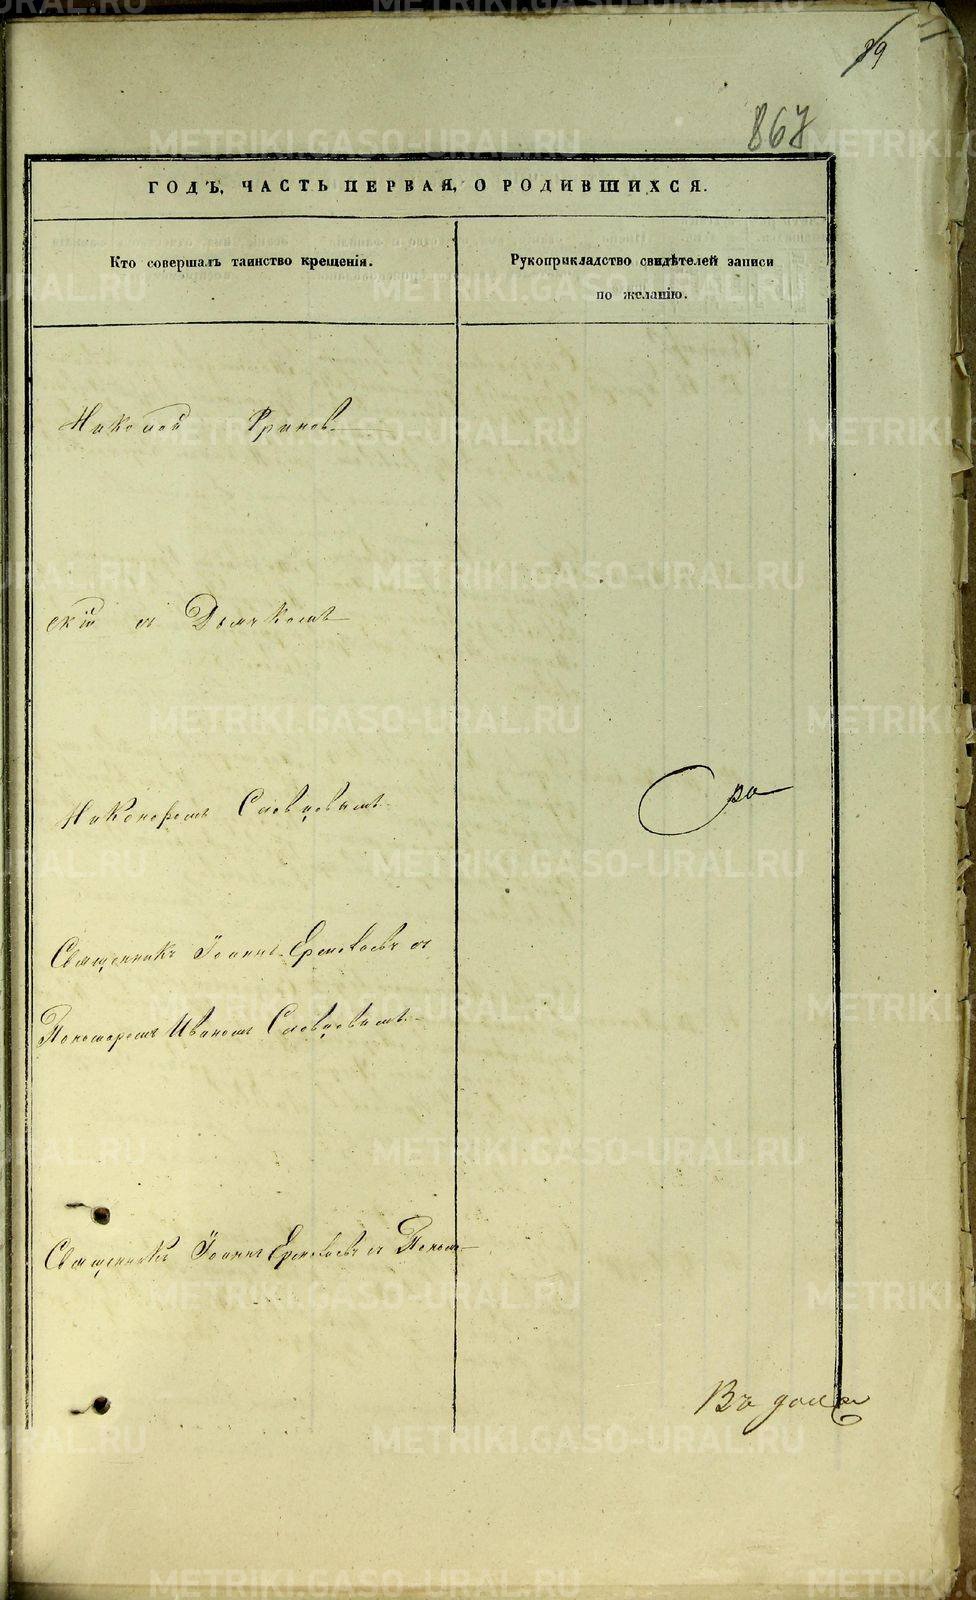 867
ГОДЪ, ЧАСТЬ ПЕРВАЯ, О РОДИВШИХСЯ.
Кто совершалъ таинство крещенія.
Рукоприкладство свидѣтелей записи
по желанію.
Николай
скій и Дьячкомъ
Никоноромъ Словцовымъ
Священникъ Іоаннъ и
Пономаремъ Иваномъ Словцовымъ
Священникъ Іоаннъ и Поном
METRIKI.GASO-URAL.RU